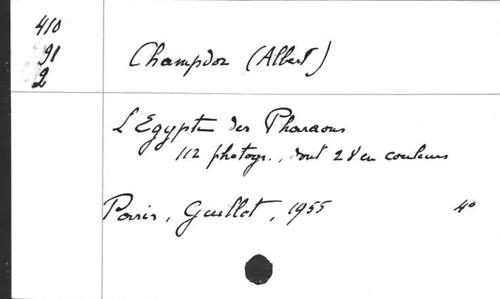 410
91
2
Champdor (Albert)
L'Egypte des Pharaons
112 photogr., dont 28 en couleurs
Paris, Guillot, 1955 4°